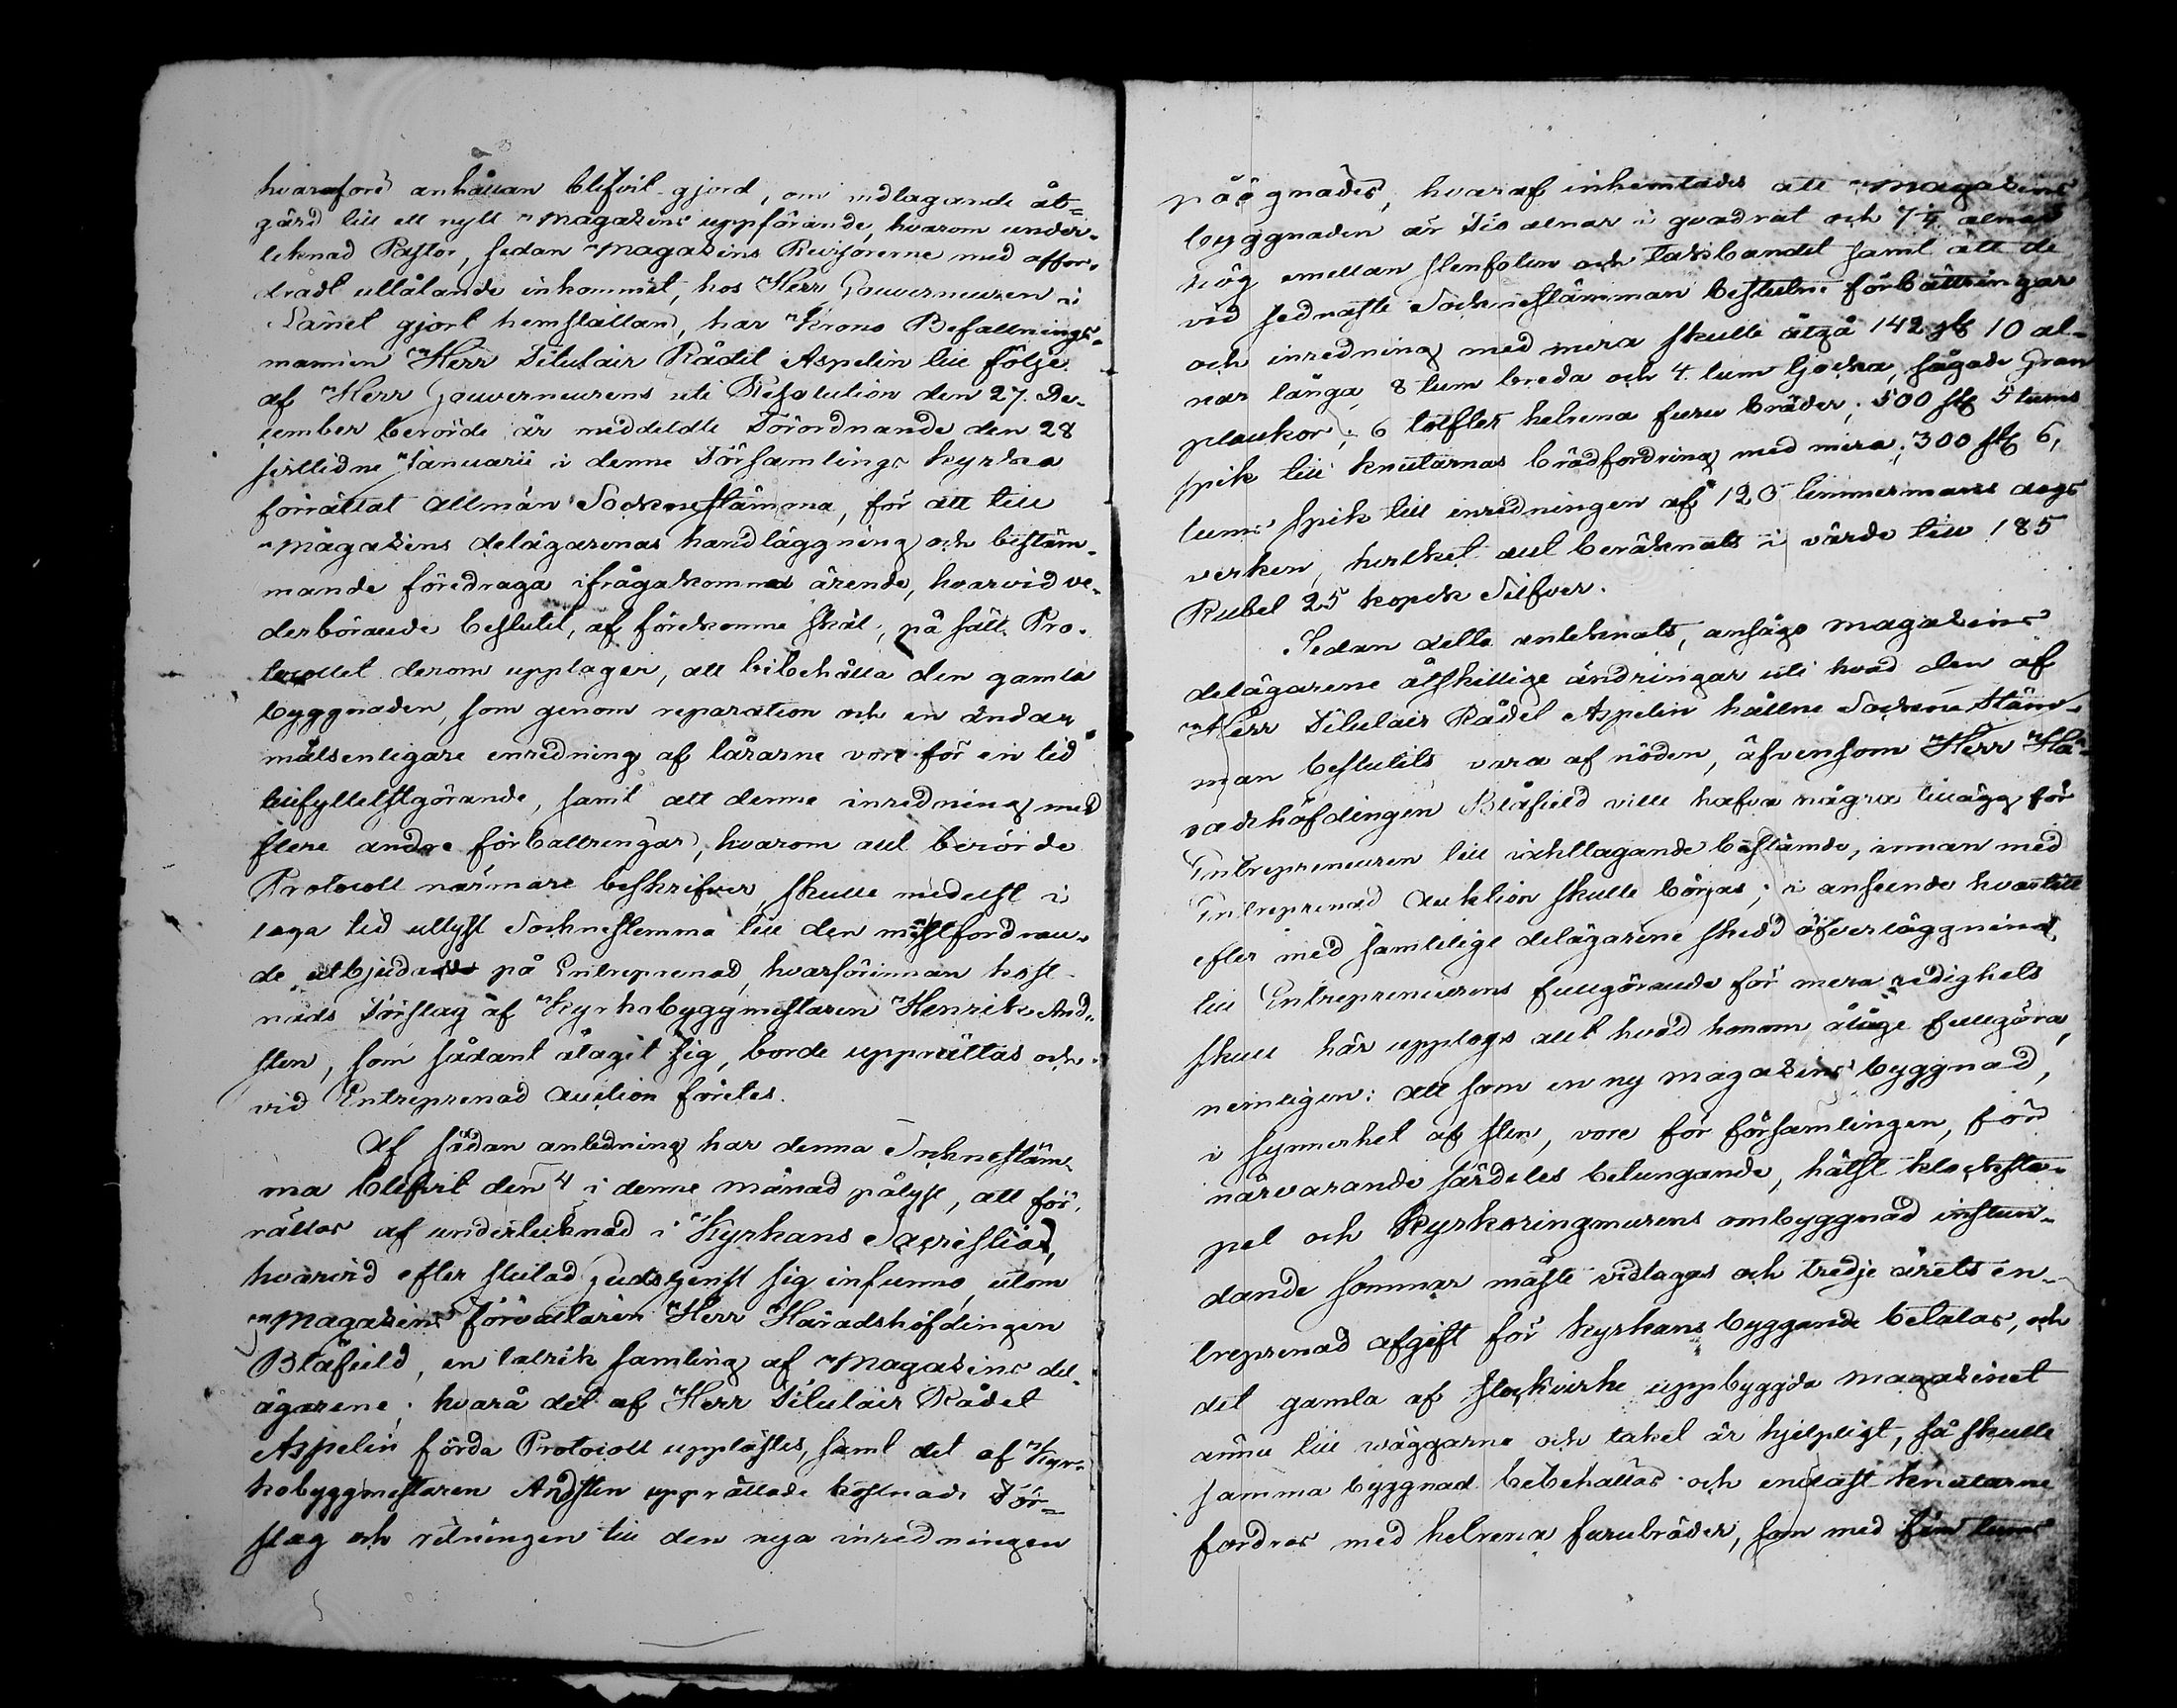 hvarafore anhållan blifvit gjord, om vidtagande åt-
gärd till ett nytt Magasins uppförande, hvarom under-
teknad Pastor, sedan Magasins Revisorerne med affor-
dradt utlåtande inkommit, hos Herr Gouverneuren i
Länet gjort hemställan, har Krono Befallnings-
mannen Herr Titulair Rådet Aspelin till följe
af Herr Gouverneurens uti Resolution den 27. De-
cember berörde år meddeldte Förordnande den 28
sistlidne Januarii i denne Församlings kyrka
förrättat allmän Socknestämma, för att till
Magasins delägarenas handläggning och bestäm-
mande föredraga ifrågakomna ärende, hvarvid ve-
derbörande beslutit, af förekomne skäl, på sätt Pro-
tocollet derom upptager, att bibehålla den gamla
byggnaden, som genom reparation och en ändar
målsenligare inredning af lårarne vore för en tid
tillfyllestgörande, samt att denne inredning med
flere andre förbättringar, hvarom allt berörde
Protocoll närmare beskrifver, skulle medelst i
laga tid utlyst Socknestemma till den mistfordran-
de utbjudas på Entreprenad, hvarförinnan kost-
nads Förslag af Kyrkobyggmestaren Henrik And-
sten, som sådant åtagit sig, borde upprättas och
vid Entreprenad Auction företes.
Af sådan anledning har denna Socknestäm-
ma blifvit den 4 i denne månad pålyst, att för-
rättas af undertecknad i Kyrkans Sacristia,
hvarvid efter slutad Gudstjenst sig infunno, utom
Magasins Förvaltaren Herr Häradshöfdingen
Blåfield, en talrik samling af Magasins del-
ägarene; hvarå det af Herr Titulair Rådet
Aspelin förda Protocoll upplästes, samt det af Kyr-
kobyggmestaren Andsten upprättade kostnads För-
slag och ritningen till den nya inredningen
påögnades, hvaraf inhemtades att Magasins
byggnaden är Tio alnar i qvadrat och 7¼ alnar
hög emellan stenfoten och takbandet samt att de
vid sednaste Socknestämman beslutne förbättringar
och inredning med mera skulle åtgå 142 st 10 al-
nar långa, 8 tum breda och 4 tum tjocka, sågade Gran
plankor; 6 tolfter helrena furu bräder; 500 st 5 tums
spik till knutarnas brädfordring med mera; 300 st 6,
tums spik till inredningen af 120 timmermans dags
verken, hvilket allt beräknats i värde till 185
Rubel 25 kopek Silfver.
Sedan detta anteknats, ansågo magasins
delägarene åtskillige ändringar uti hvad den af
Herr Titulair Rådet Aspelin hållne Sockne Stäm-
man beslutits vara af nöden, äfvensom Herr Hä-
radshöfdingen Blåfield ville hafva några tillägg för
Entrepreneuren till iakttagande bestämde, innan med
Entreprenad Auktion skulle börjas; i anseende hvartill
efter med samtelige delägarene skedd öfverläggning
till Entrepreneurens fullgörande för mera redighets
skull här upptogs allt hvad honom ålåge fullgöra,
nemligen: att som en ny magasins byggnad,
i synnerhet af sten, vore för församlingen, för
närvarande särdeles betungande, hälst klocksta-
pel och Kyrkoringmurens ombyggnad instun-
dande sommar måste vidtagas och tredje årets en-
treprenad afgift för Kyrkans byggande betalas, och
det gamla af stockvirke uppbyggda magasinet
ännu till väggarne och taket är hjelpligt, så skulle
samma byggnad bebehållas och endast knutarne
fordras med helrena furubräder, som med fem tums